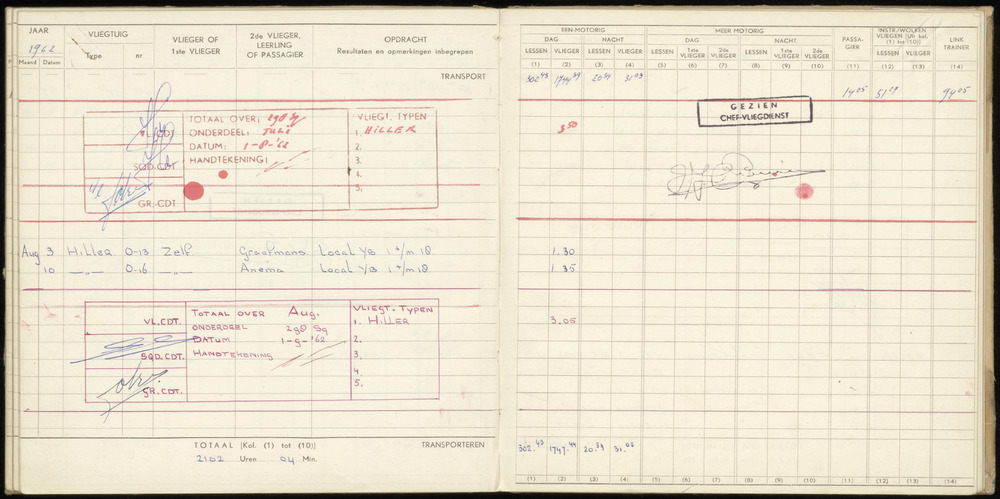 JAAR
1962
Maand Datum
VLIEGTUIG
Type nr
VLIEGER OF
1ste VLIEGER
2de VLIEGER,
LEERLING
OF PASSAGIER
OPDRACHT
Resultaten en opmerkingen inbegrepen
TRANSPORT
VL.CDT
SQD.CDT
GR.-CDT
TOTAAL OVER: 298 Sq
ONDERDEEL: JULI
DATUM: 1-8-'62
HANDTEKENING:
VLIEGT. TYPEN
1. HILLER
2.
3.
4.
5.
Aug 3 Hiller O-13 Zelf Graafmans Local Y/B 1 t/m 18
10 —"— O-16 —"— Anema Local Y/B 1 t/m 18
VL.CDT.
SQD.CDT.
GR.CDT.
TOTAAL OVER Aug.
ONDERDEEL 298 Sq
DATUM 1-9-'62
HANDTEKENING
VLIEGT-TYPEN
1. HILLER
2.
3.
4.
5.
TOTAAL (Kol. (1) tot (10)) TRANSPORTEREN
2102 Uren 04 Min.
EEN-MOTORIG
DAG NACHT
LESSEN VLIEGER LESSEN VLIEGER
(1) (2) (3) (4)
MEER MOTORIG
DAG NACHT
LESSEN 1ste VLIEGER 2de VLIEGER LESSEN 1ste VLIEGER 2de VLIEGER
(5) (6) (7) (8) (9) (10)
PASSA-
GIER
(11)
INSTR./WOLKEN
VLIEGEN (Uit kol.
(1) tot (10))
LESSEN VLIEGER
(12) (13)
LINK
TRAINER
(14)
302.43 1744.39 20.39 31.03 14.05 51.29 94.05
GEZIEN
CHEF-VLIEGDIENST
3.50
1.30
1.35
3.05
302.43 1747.44 20.39 31.03
(1) (2) (3) (4) (5) (6) (7) (8) (9) (10) (11) (12) (13) (14)